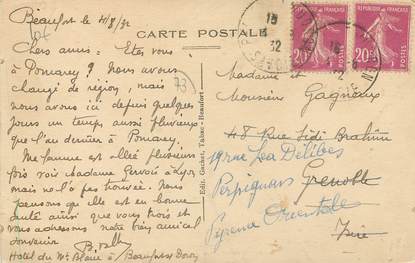 Beaufort le 4/8/32
CARTE POSTALE
RÉPUBLIQUE FRANÇAISE
RÉPUBLIQUE FRANÇAISE
20c
20c
Chers amis: Êtes vous
à Pomarey? Nous avons
changé de région, mais
nous avons ici depuis quelques
jours un temps aussi pluvieux
que l'an dernier à Pomarey.
Ma femme est allée plusieurs
fois voir Madame Gervois à Lyon
mais ne l'a pas trouvée. Nous
pensons qu'elle est en bonne
santé ainsi que vous trois et
vous adressons notre bien amical
souvenir
Hotel du Mt Blanc à Beaufort
73
Edit. Gachet, Tabac - Beaufort
Madame et
Monsieur Gagneux
48 Rue Sidi Brahim
19 rue Léo Délibes
Grenoble
Perpignan
Isère
Pyrénées Orientale